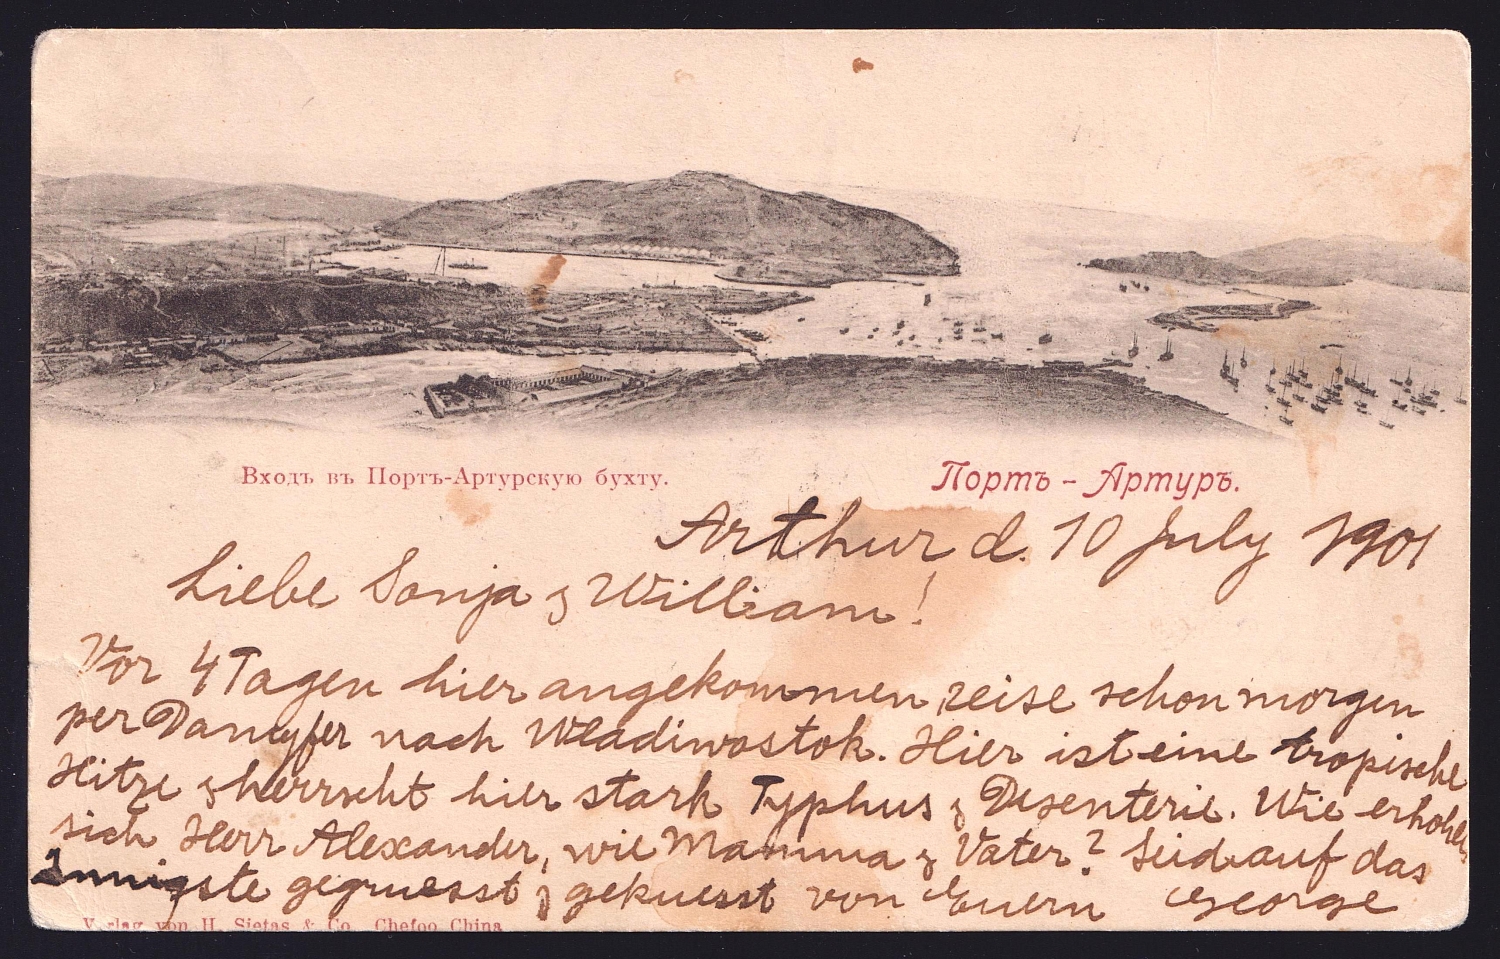 Входъ въ Портъ-Артурскую бухту.
Портъ-Артуръ.
Arthur d. 10 July 1901
Liebe Sonja & William!
Vor 4 Tagen hier angekommen, reise schon morgen
per Dampfer nach Wladiwostok. Hier ist eine tropische
Hitze & herrscht hier stark Typhus & Desenterie. Wie erholen
sich Herr Alexander, wie Mamma & Vater? Seid auf das
Innigste gegruesst & gekuesst von Euern George
Verlag von H. Sietas & Co. Chefoo China